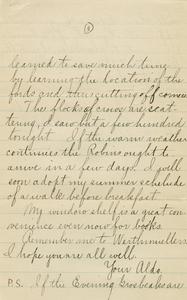 (8)
learned to save much time
by learning the location of the
fords and thus cutting off corners
The flocks of crows are scat-
tering, I saw but a few hundred
tonight. If the warm weather
continues the Robins ought to
arrive in a few days. I will
soon adopt my summer schedule
of a walk before breakfast.
My window shelf is a great con-
venience even now for books.
Remember me to Werthmuellers.
I hope you are all well.
Your Aldo.
P.S. If the Evening Grosbeaks are